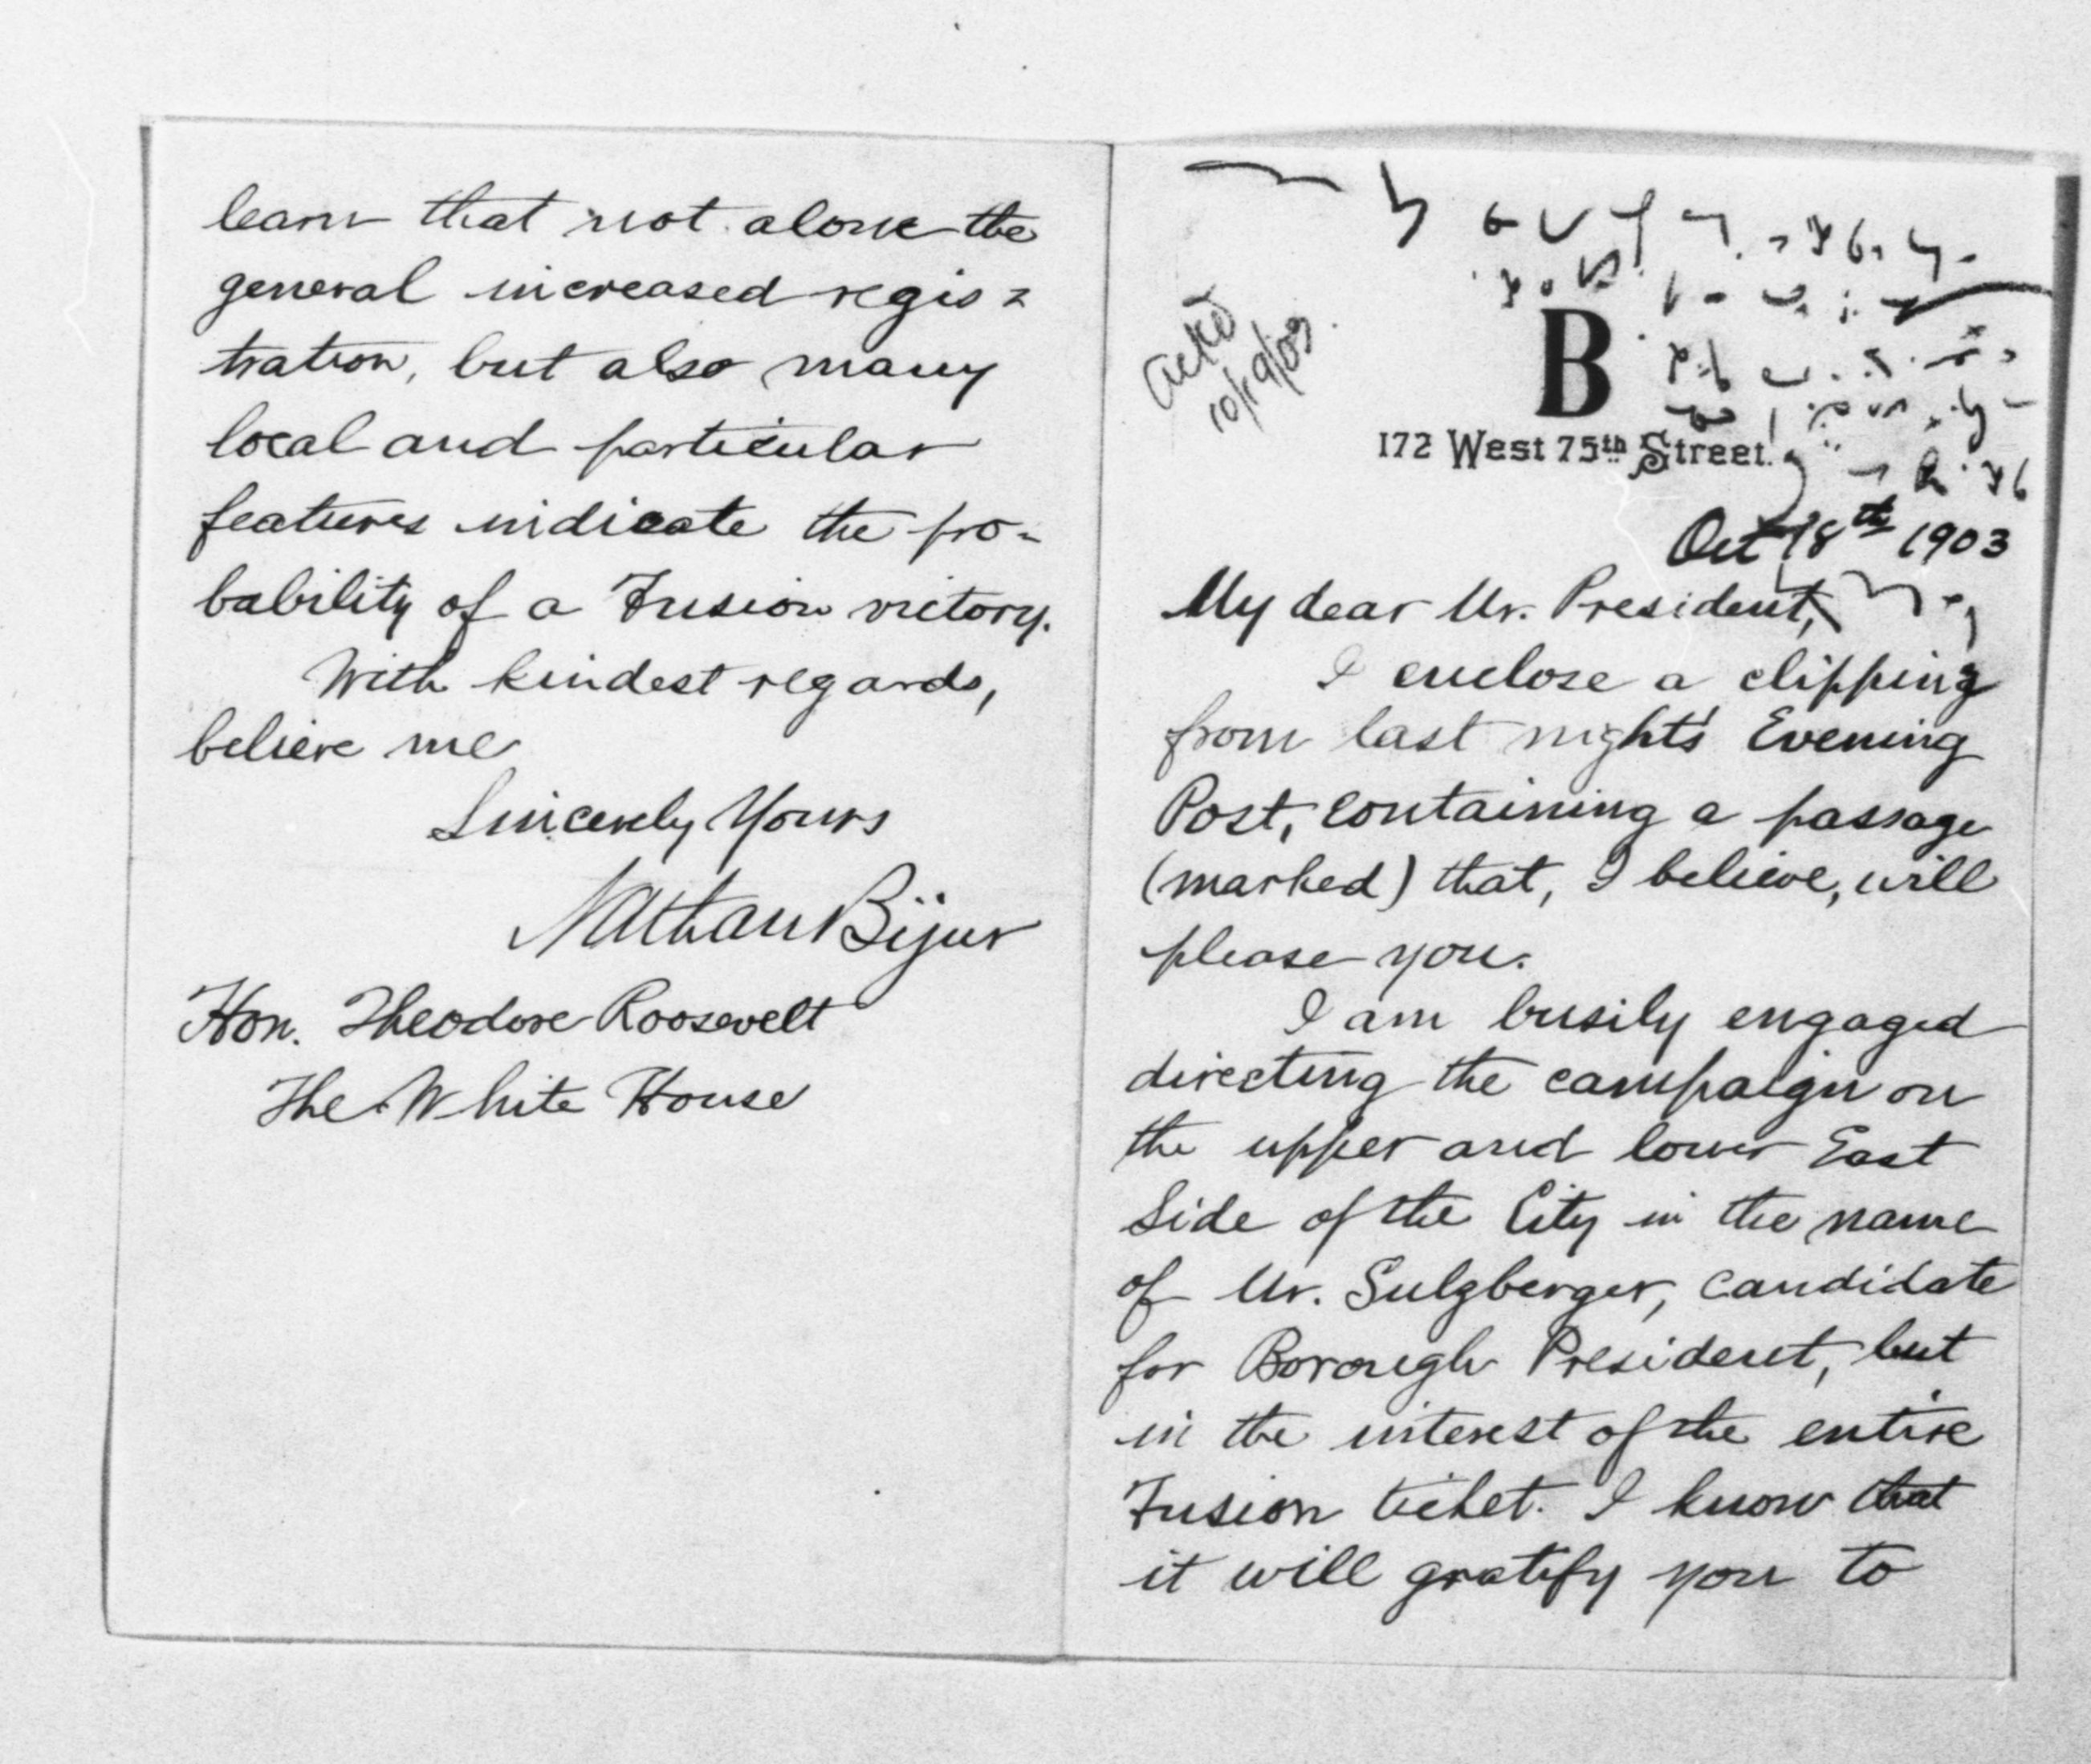 Ack'd
10/19/03.
B
172 West 75th Street.
Oct 18th 1903
My dear Mr. President,
I enclose a clipping
from last night's Evening
Post, containing a passage
(marked) that, I believe, will
please you.
I am busily engaged
directing the campaign on
the upper and lower East
Side of the City in the name
of Mr. Sulzberger, candidate
for Borough President, but
in the interest of the entire
Fusion ticket. I know that
it will gratify you to
learn that not alone the
general increased regis=
tration, but also many
local and particular
features indicate the pro=
bability of a Fusion victory.
With kindest regards,
believe me
Sincerely Yours
Nathan Bijur
Hon. Theodore Roosevelt
The White House